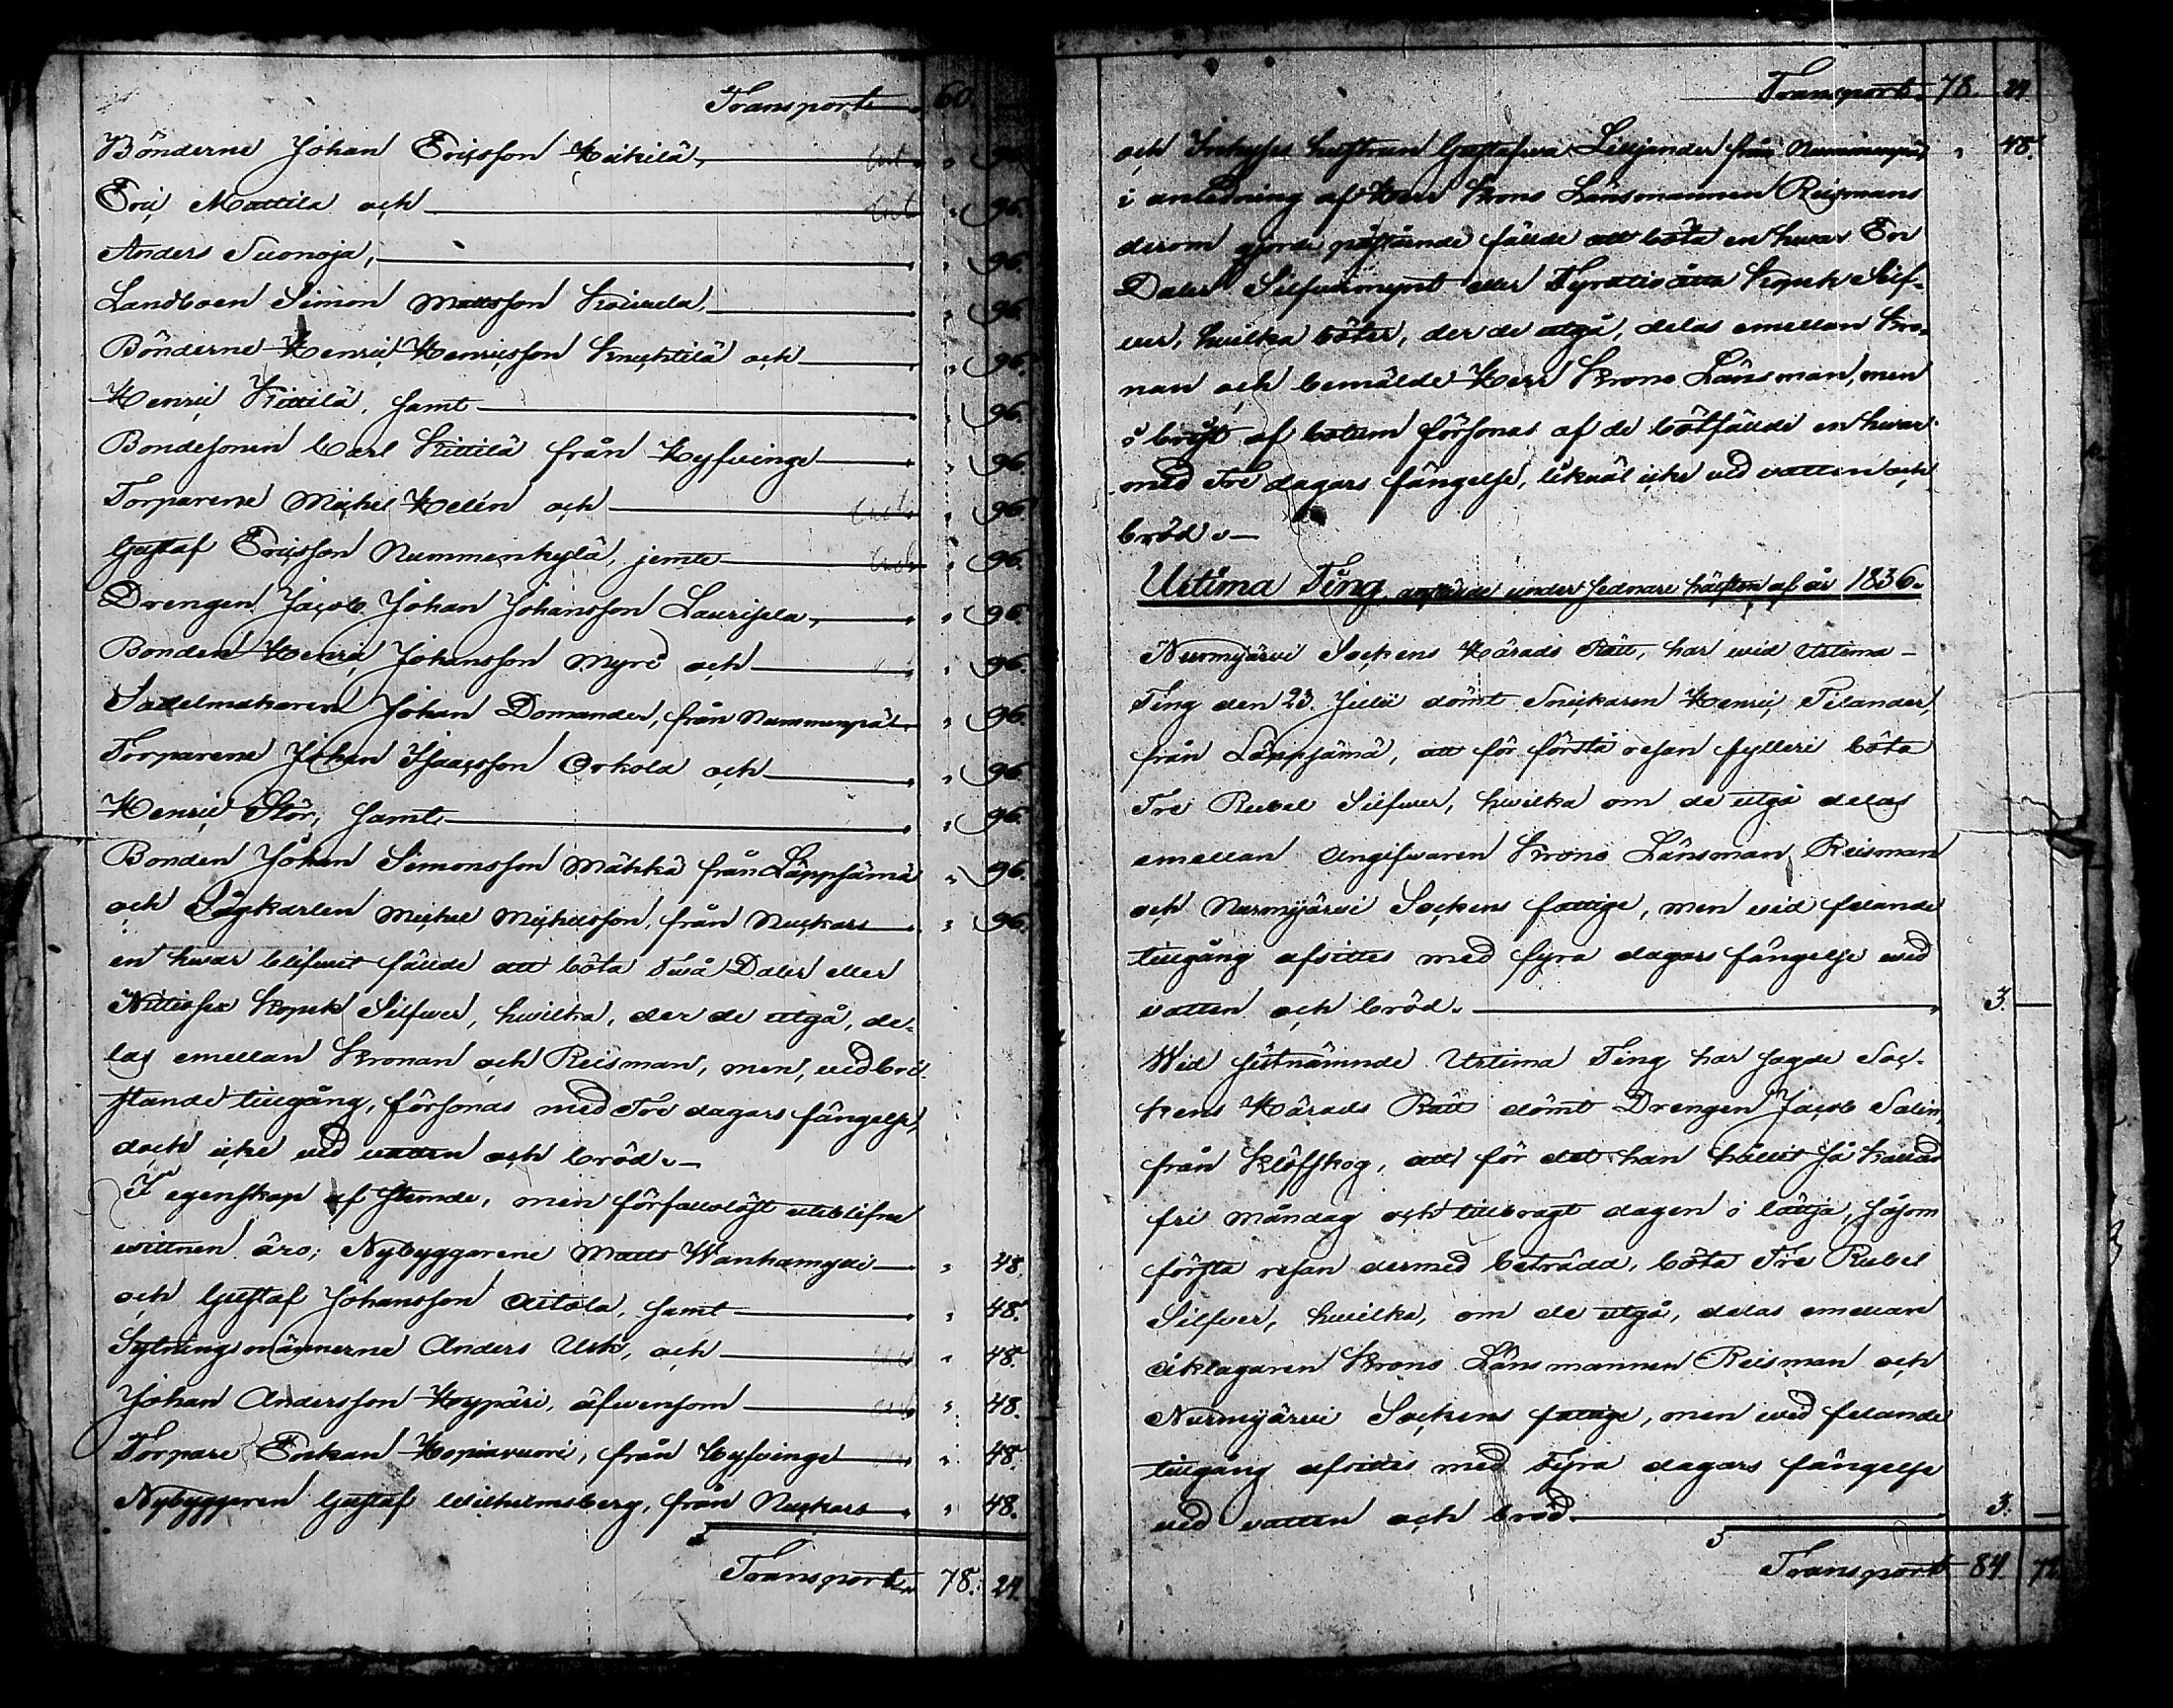 Transport 60
Bönderne Johan Ericsson Heikilä, " 96.
Eric Mattila och " 96.
Anders Suonoja, " 96.
Landboen Simon Mattsson Koirula, " 96.
Bönderne Henric Henricsson Knuchtilä och " 96.
Henric Kittilä, samt " 96.
Bondesonen Carl Kittilä från Hyfvinge " 96.
Torparene Michel Helén och " 96.
Gustaf Ericsson Nummenkylä, jemte " 96.
Drengen Jacob Johan Johansson Laurijela, " 96.
Bonden Henric Johansson Myré och " 96.
Sadelmakaren Johan Domander, från Nummenpää " 96.
Torparene Johan Isaacsson Orkola och " 96
Henric Stör, samt " 96.
Bonden Johan Simonsson Mähkä från Läppjämä " 96.
och Sågkarlen Michel Michelsson, från Nuckars " 96.
en hvar blifwit fällde att böta Två Daler eller
Nittiosex Kopek Silfwer, hwilka, der de utgå, de-
las emellan Kronan och Reisman, men, ved bri-
stande tillgång, försonas med Tre dagars fängelse,
dock icke ved vatten och bröd.
I egenskap af stemde, men förfallolöst uteblifne
wittnen äro; Nybyggarene Matts Wanhamydi " 48.
och Gustaf Johansson Aitola, samt " 48.
Sytningsmännerne Anders Ask, och " 48.
Johan Andersson Hoypäri, äfwensom " 48.
Torpare Enkan Hopiavuori, från Hyfvinge " 48.
Nybyggaren Gustaf Wilhelmsberg, från Nuckars " 48.
Transport 78. 24.
Transport. 78. 24
och Inhyses hustrun Gustafwa Liljander från Nummenpää " 48.
i anledning af Herr Krono Länsmannen Reismans
derom gjorde påstående fällde att böta en hwar En
Daler Silfvermynt eller Fyratioåtta Kopek Silf-
ver, hwilka böter, der de utgå, delas emellan Kro-
nan och bemälde Herr Krono Länsman, men
i brist af botum försonas af de bötfällde en hwar
med Tre dagars fängelse, likväl icke ved vatten och
bröd.
Urtima Ting anstälde under sednare hälften af år 1836.
Nurmijärvi Sockens Härads Rätt, har wid Urtima
Ting den 23. Julii dömt Snickaren Henric Silander,
från Läppjämä, att för första resan fylleri böta
Tre Rubel Silfwer, hwilka om de utgå delas
emellan Angifwaren Krono Länsman Reisman
och Nurmijärvi Sockens fattige, men vid felande
tillgång afsittes med fyra dagars fängelse wid
vatten och bröd. 3. —
Wid sistnämnde Urtima Ting har sagde Soc-
kens Härads Rätt dömt Drengen Jacob Salin,
från Klöfskog, att för det han hållit så kallad
fri måndag och tillbragt dagen i lättja, såsom
första resan dermed beträdd, böta Tre Rubel
Silfver, hwilka, om de utgå, delas emellan
åklagaren Krono Länsmannen Reisman och
Nurmijärvi Sockens fattige, men wed felande
tillgång afsittes med Fyra dagars fängelse
ved vatten och bröd. 3. —
Transport 84. 72.